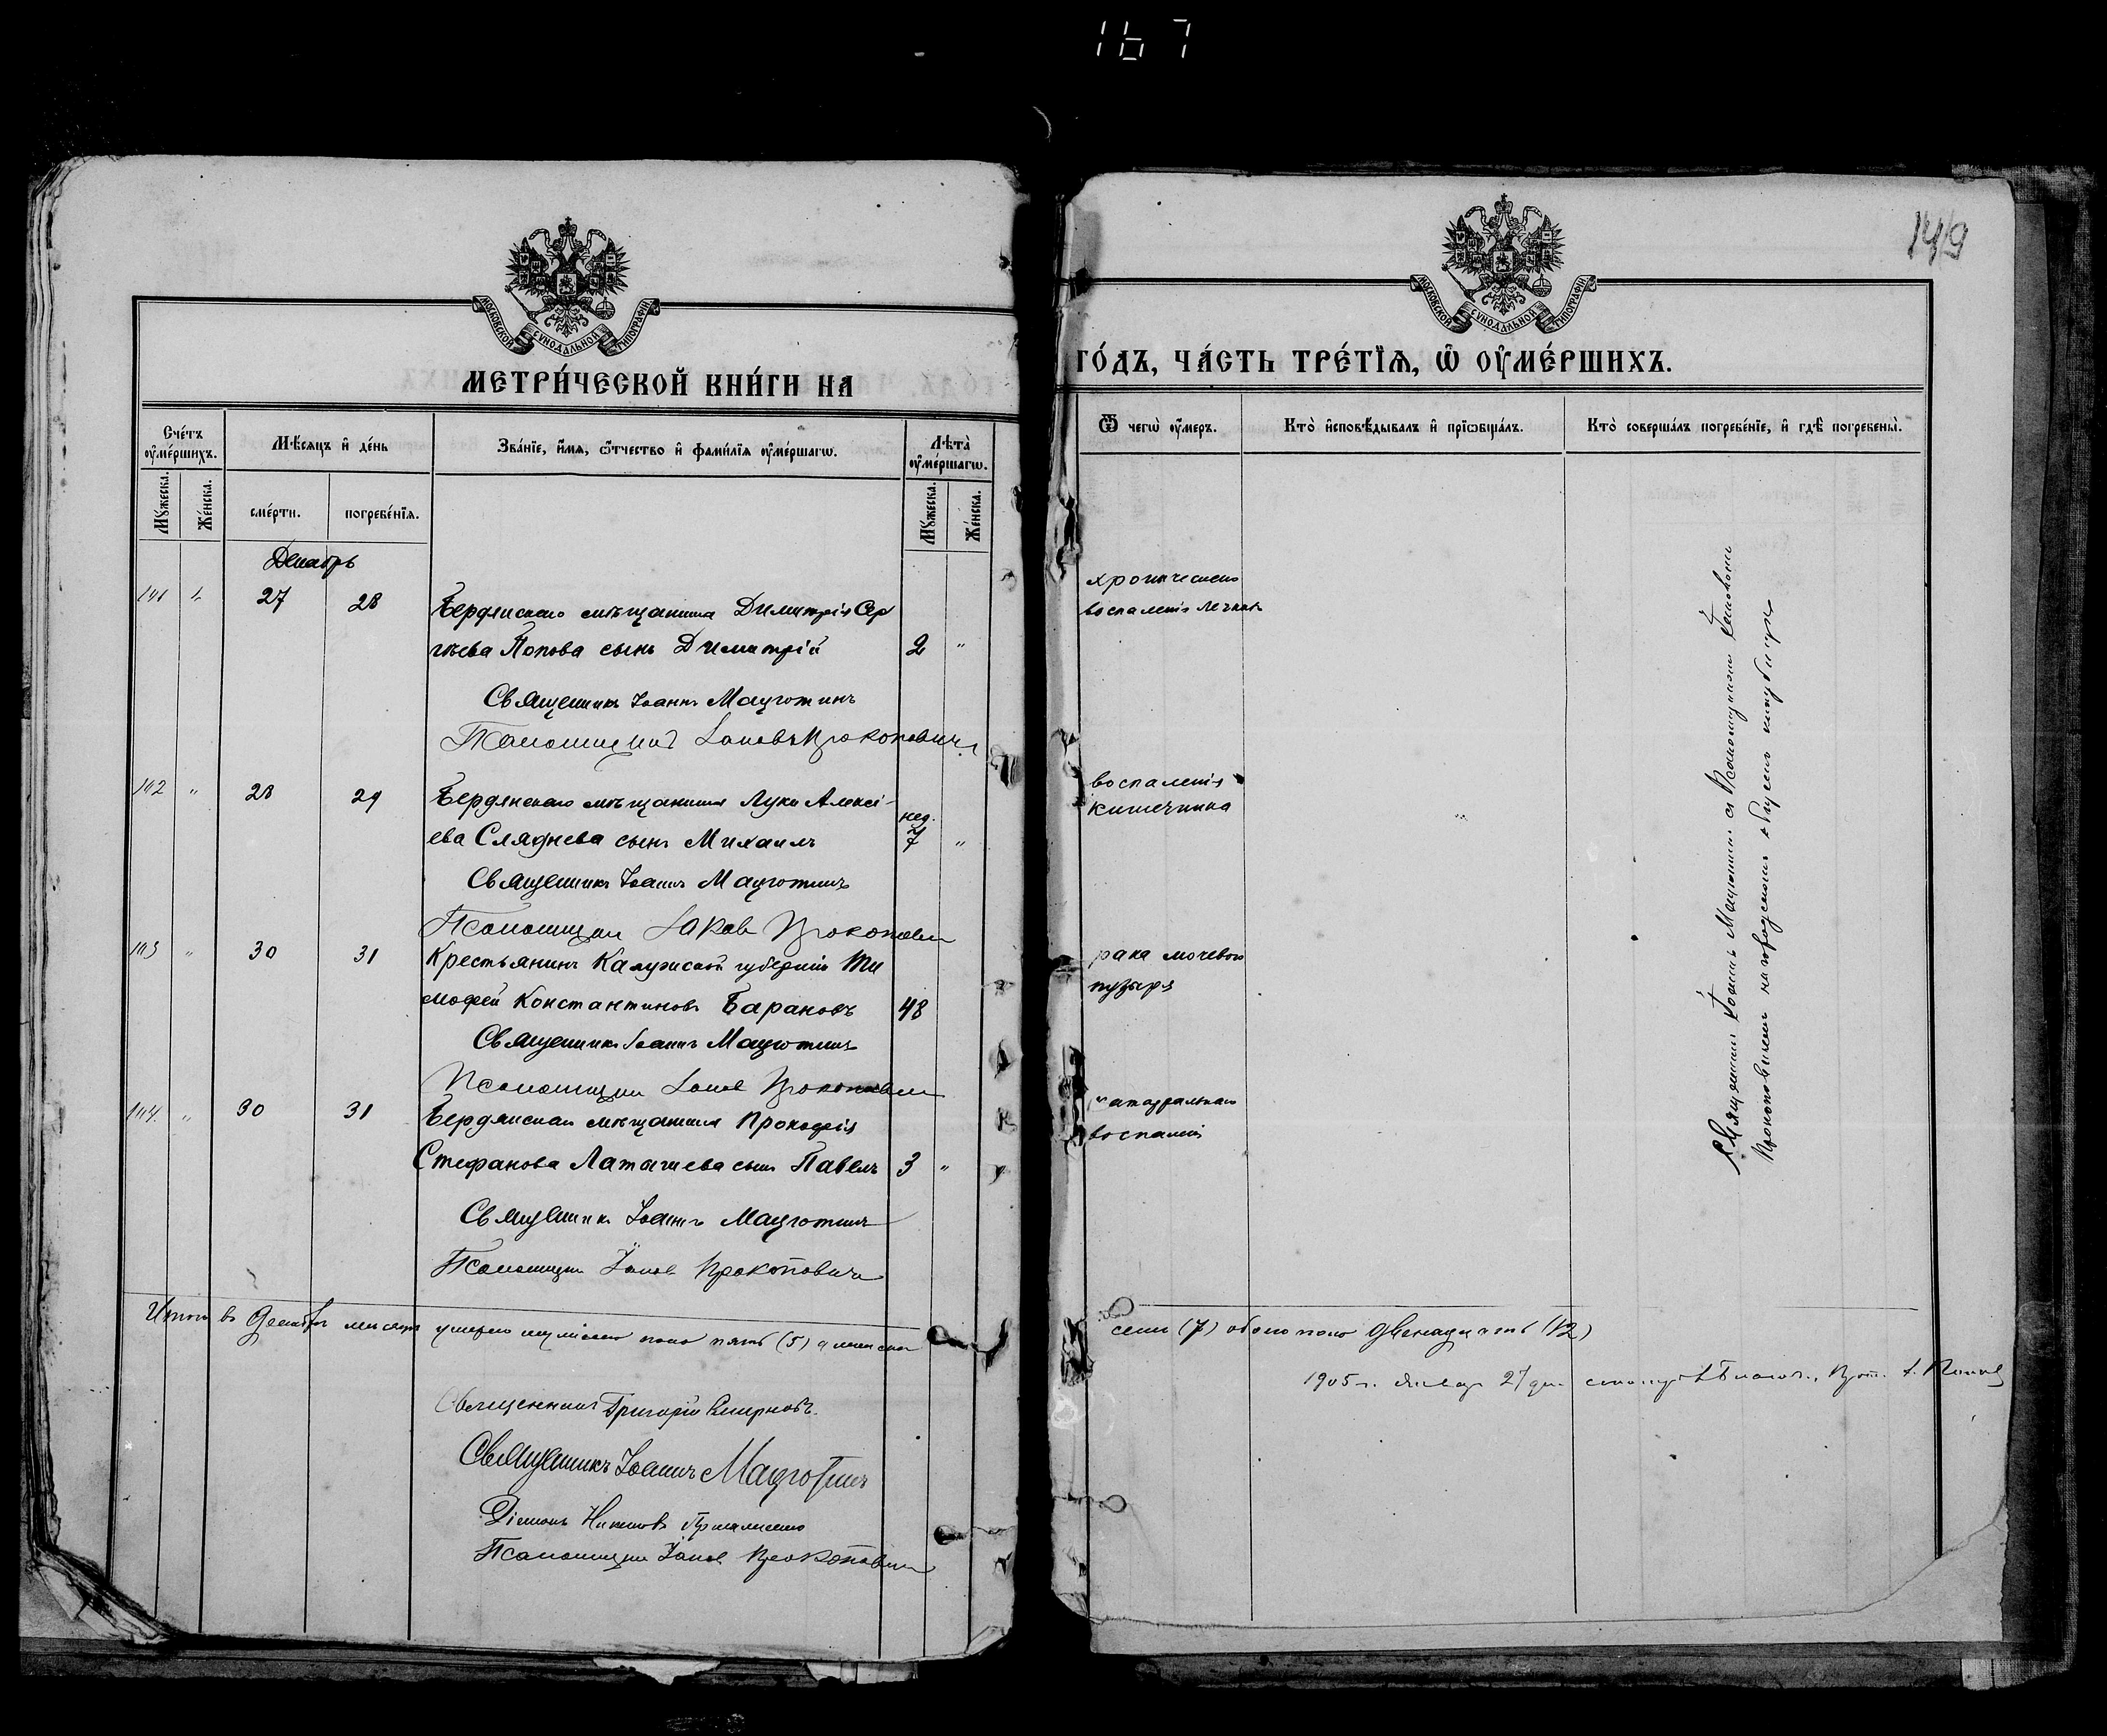 167
149
МОСКОВСКОЙ СѴНОДАЛЬНОЙ ТИПОГРАФІИ.
МЕТРИ́ЧЕСКОЙ КНИ́ГИ НА
Сче́тъ ᲂу҆ме́ршихъ.
Мѣ́сяцъ и҆ де́нь
Зва́нїе, и҆́мѧ, ѻ҆́тчество и҆ фами́лїѧ ᲂу҆ме́ршагѡ.
Лѣ́та ᲂу҆ме́ршагѡ.
Мꙋ́жеска.
Же́нска.
сме́рти.
погребе́нїѧ.
Мꙋ́жеска.
Же́нска.
Декабрь
141 " 27 28 Бердянскаго мѣщанина Димитрія Сер
гѣева Попова сынъ Димитрій 2 "
Священникъ Іоаннъ Мацготинъ
Псаломщикъ Іаковъ Прокоповичъ
142 " 28 29 Бердянскаго мѣщанина Луки Алексѣ-
ева Сляднева сынъ Михаилъ нед. 7 "
Священникъ Іоаннъ Мацготинъ
Псаломщикъ Іаковъ Прокоповичъ
143 " 30 31 Крестьянинъ Калужской губерніи Ти
мофей Константиновъ Барановъ 48
Священникъ Іоаннъ Мацготинъ
Псаломщикъ Іаковъ Прокоповичъ
144 " 30 31 Бердянскаго мѣщанина Прокофія
Стефанова Латышева сынъ Павелъ 3 "
Священникъ Іоаннъ Мацготинъ
Псаломщикъ Іаковъ Прокоповичъ
Итого въ Декабрѣ мѣсяцѣ умерло мужскаго пола пять (5) а женскаго
Священникъ Григорій Смирновъ.
Священникъ Іоаннъ Мацготинъ
Діаконъ
Псаломщикъ Іаковъ Прокоповичъ
МОСКОВСКОЙ СѴНОДАЛЬНОЙ ТИПОГРАФІИ.
ГО́ДЪ, ЧА́СТЬ ТРЕ́ТЇѦ, Ѡ҆ ОУ҆МЕ́РШИХЪ.
Ѿ чегѡ̀ ᲂу҆́меръ.
Кто̀ и҆сповѣ́дывалъ и҆ прїѡбща́лъ.
Кто̀ соверша́лъ погребе́нїе, и҆ гдѣ̀ погребены̀.
хроническаго
воспаленія легкихъ
воспаленія
кишечника
рака мочевого
пузыря
катарральнаго
воспаленія
Священникъ Іоаннъ Мацготинъ съ Псаломщикомъ Іаковомъ
Прокоповичемъ на городскомъ общемъ кладбищѣ
семь (7) обоего пола двенадцать (12)
1905 г. Января 27 дня